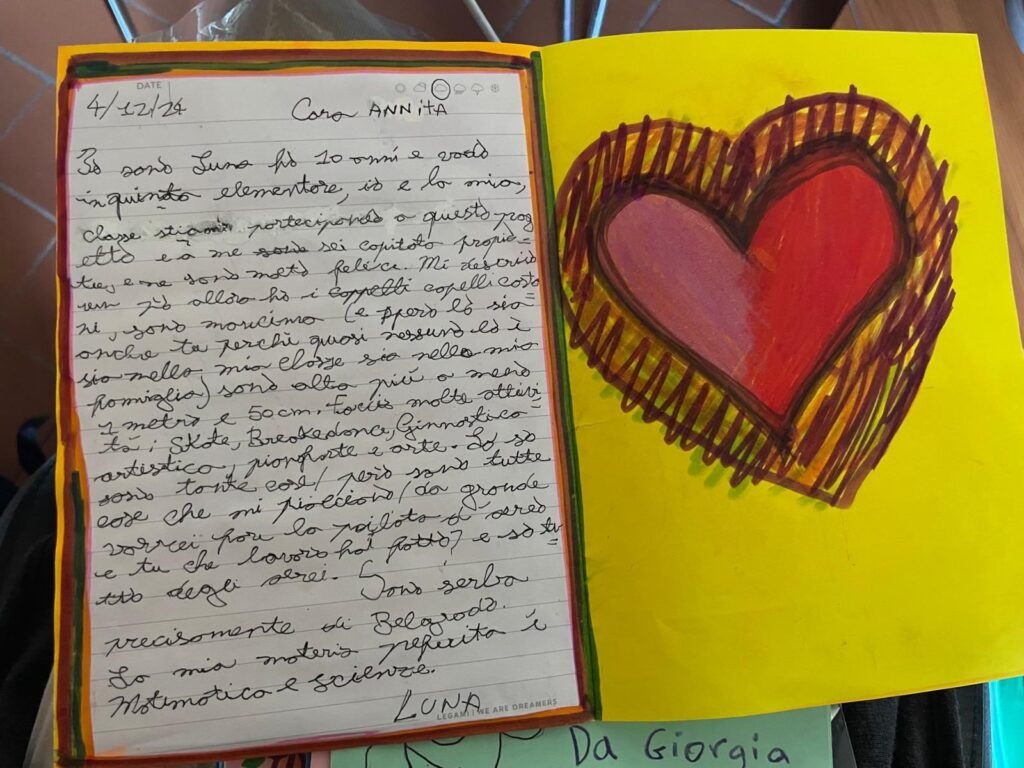 DATE
4/12/24
Cara ANNITA
Io sono Luna ho 10 anni e vado
in quinta elementare, io e la mia,
classe stiamo partecipando a questo prog
etto e a me sei capitata proprio
tu, e ne sono molto felice. Mi descrivo
un pò allora ho i cappelli capelli casta
ni, sono mancina (e spero lo sia
anche tu perchè quasi nessuno lo è
sia nella mia classe sia nella mia
famiglia) sono alta più o meno
1 metro e 50 cm. Faccio molte attivi
tà: Skate, Breakedance, Ginnastica
artistica, pianforte e arte. Lo so
sono tante cose/ però sono tutte
cose che mi piacciono/ da grande
vorrei fare la pilota d'aereo
e tu che lavoro hai fatto? e so tu
tto degli aerei. Sono serba
precisamente di Belgrado.
La mia materia preferita è
Matematica e scienze.
LUNA
LEGAMI | WE ARE DREAMERS
Da Giorgia